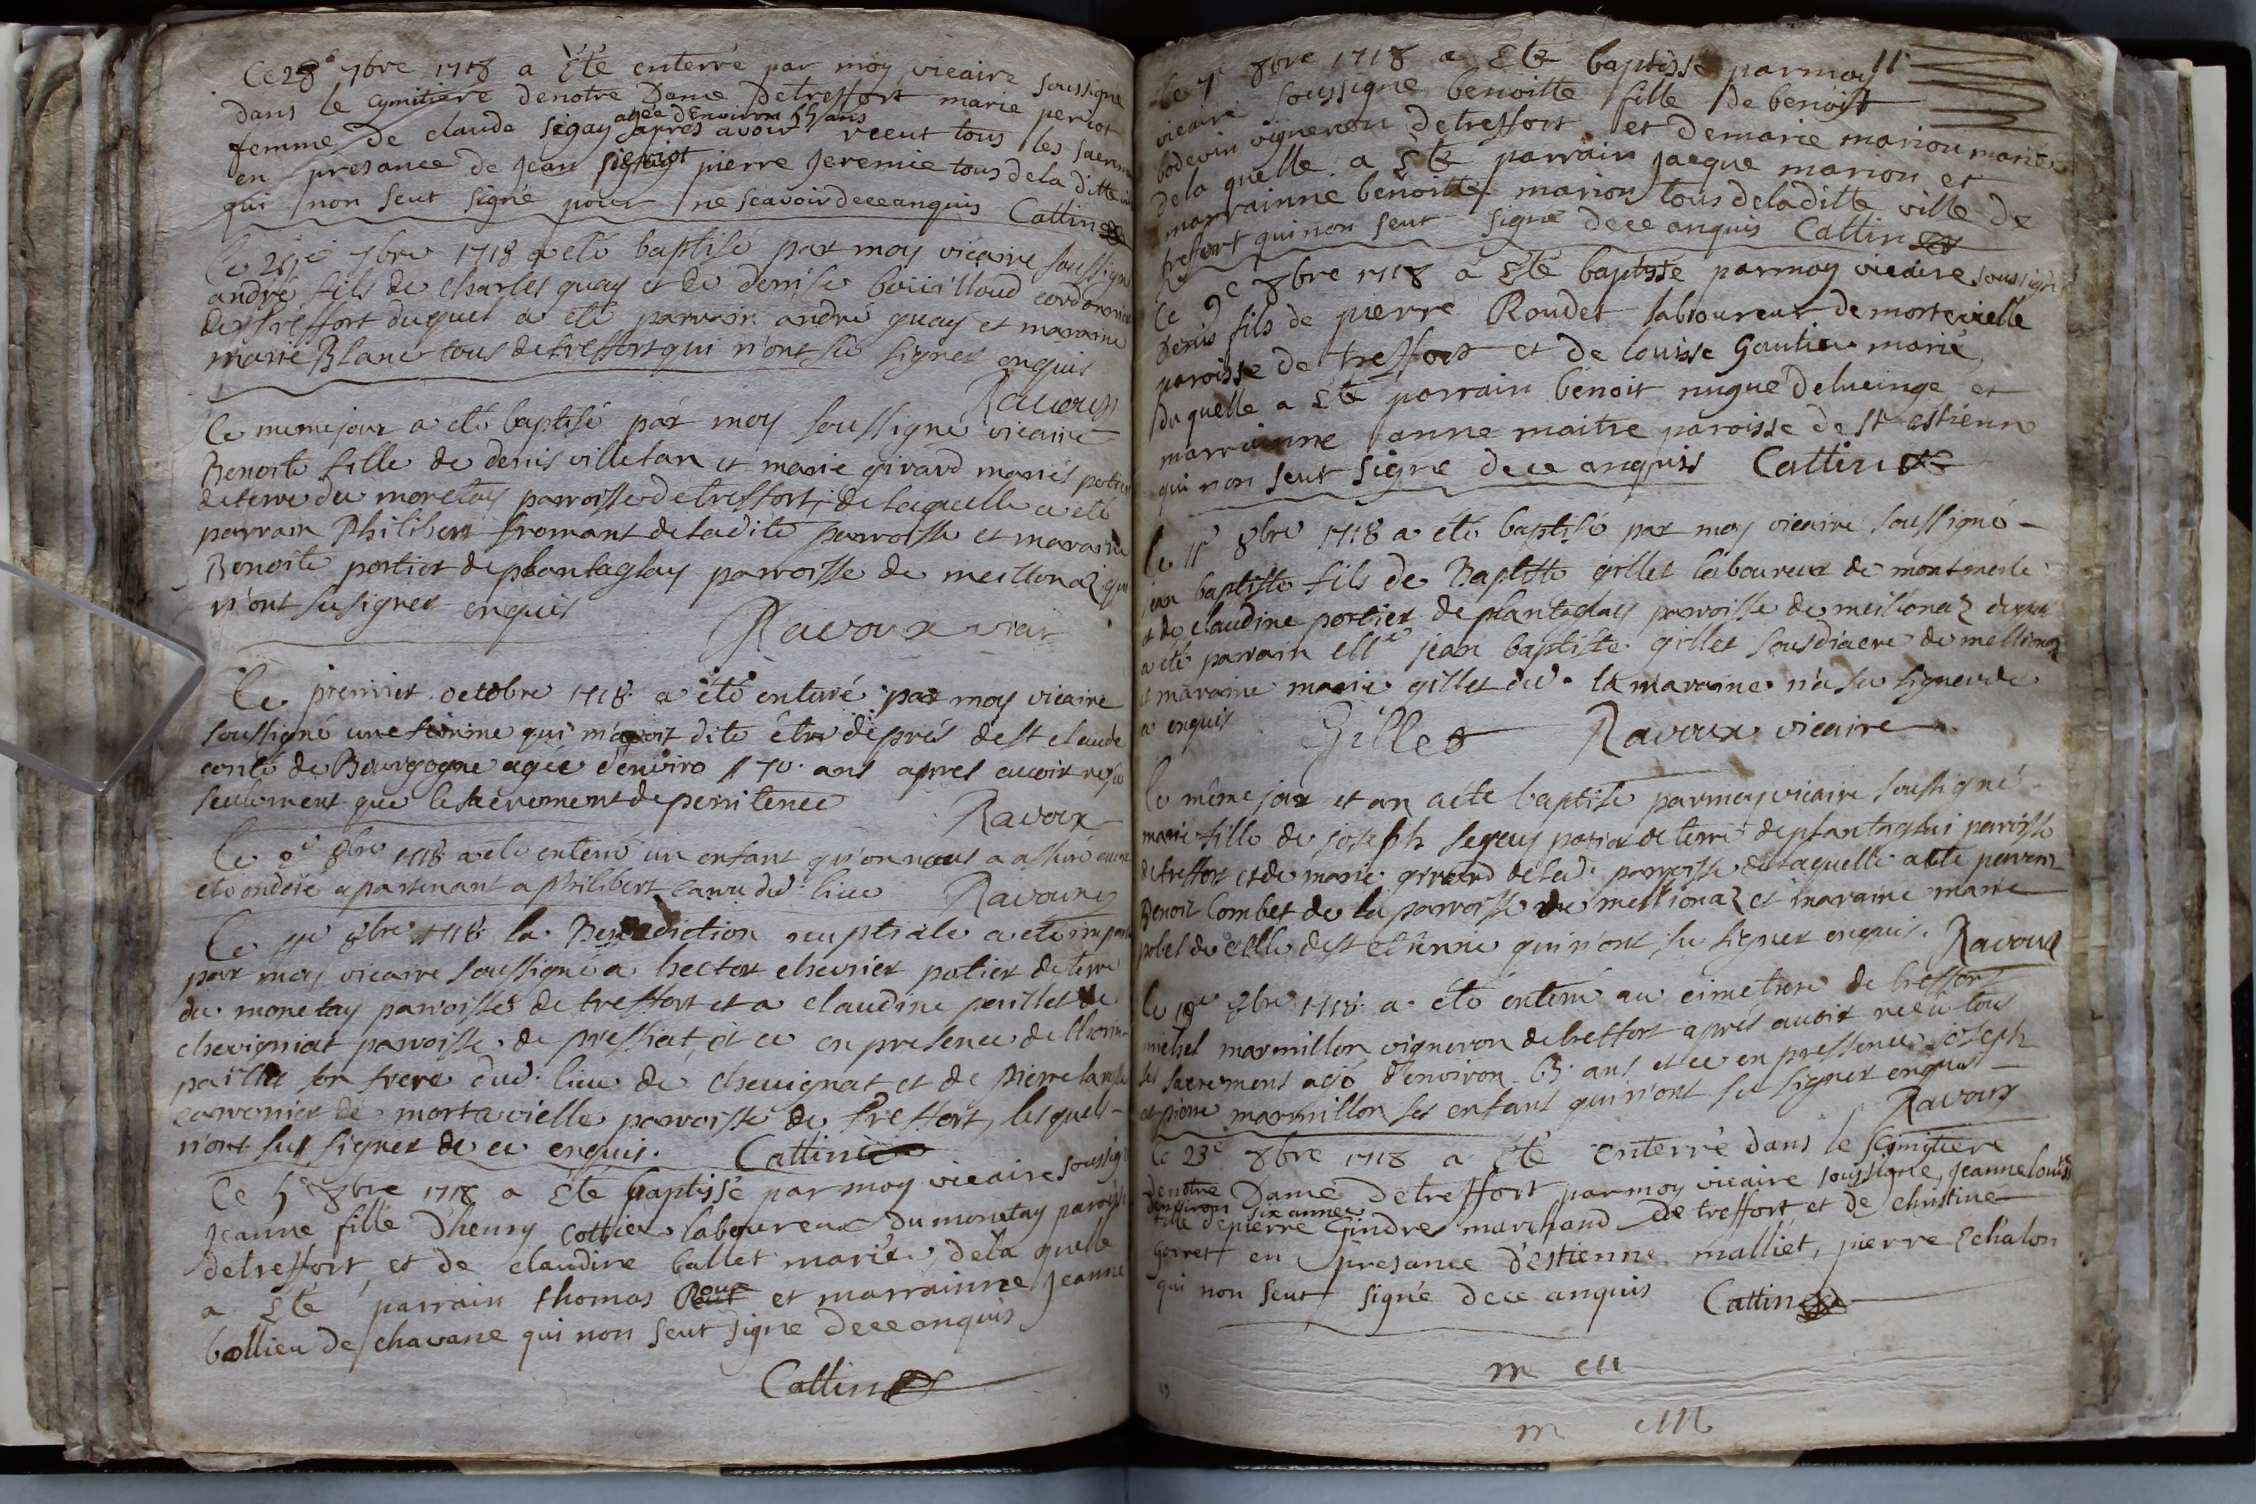 Ce 28e 7bre 1718 a Été enterré par moy vicaire soussigne
dans le cymitiere denotre Dame detreffort marie periot
femme de claude sigay agée d'Environ 55 ans apres avoir receut tous les sacrm
en presance de jean pierre jeremie tous de la ditte
qui non seut signé pour ne scavoir dece anquis Cattin
Ce 7bre 1718 a été baptisé par moy vicaire soussigné
andré fils de charles quay et de denise bouilloud cordonnier
de treffort duquel a eté parrain andré quay et maraine
marie Blanc tous de treffort qui n'ont su signer enquis
Ravoux
Ce meme jour a eté baptisé par moy soussigné vicaire
Benoite fille de denis villetan et marie girard mariés potier
de terre du moretay parroisse de treffort, de laquelle a eté
parrain Philibert fromant de ladite parroisse et maraine
Benoite portier de plantaglay parroisse de meillonaz qui
n'ont su signer enquis
Ravoux vicar
Ce premier octobre 1718 a été enterré par moy vicaire
soussigné une femme qui m'avoit dite être de prés de st claude
conté de Bourgogne agée d'enviro 70 ans apres avoir reçu
seulement que le sacrement de penitence Ravoux
Ce 2e 8bre 1718 a eté enterré un enfant qu'on nous a assuré avoir
eté ondoié apartenant a Philibert dud. lieu Ravoux
Ce 8bre 1718 la Benediction nuptiale a eté
par moy vicaire soussigné a hector chevrier potier de terre
du monetay parroisse de treffort et a claudine paillet de
chevigniat parroisse de pressiat, et ce en presence de
paillet son frere dud. lieu de chevignat et de pierre
de mortavielle parroisse de treffort, lesquels
n'ont sus signer de ce enquis. Cattin
Ce 5e 8bre 1718 a Été baptissé par moy vicaire soussigné
jeanne fille d'henry cottier laboureur du monetay paroisse
detreffort, et de claudine ballet marié, dela quelle
a Été parrain thomas et marrainne jeanne
bollieu de chavane qui non seut signe dece anquis
Cattin
Ce 7e 8bre 1718 a Eté baptissé parmoy
vicaire soussigne benoitte fille de benoist
bodevin vigneron detreffort et demarie marion mariés
dela quelle a Eté parrain jacque marion et
marrainne benoitte marion tous deladitte ville de
trefort qui non seut signé dece anquis Cattin
Ce 9e 8bre 1718 a Eté baptissé parmoy vicaire soussigné
Denis fils de pierre Roudet laboureur de mortevielle
paroisse de treffort et de louisse Gautier marié
Duquelle a Eté parrain benoit nugue delucinge et
marrainne anne maitre paroisse de St estienne
qui non seut signe dece anquis Cattin
Ce 11e 8bre 1718 a eté baptisé par moy vicaire soussigné
jean baptiste fils de Baptiste gillet laboureur de montmerle
et de claudine portier de plantaglay parroisse de meillonaz
a eté parrain jean baptiste gillet sousdiacre de meillonaz
et maraine marie gillet dud. la maraine n'a su signer de
ce enquis Gillet Ravoux vicaire
Ce même jour et an a eté baptisé par moy vicaire soussigné
marie fille de joseph potier de terre de plantaglai parroisse
de treffort et de marie girard de lad. parroisse de laquelle a eté parrain
Benoit Combet de la parroisse de meillonaz et maraine marie
probel de celle de st etienne qui n'ont su signer enquis. Ravoux
Ce 19e 8bre 1718 a été enterré au cimetiere de treffort
michel marmillon vigneron de treffort aprés avoir recu tous
les sacremens agé d'environ 65 ans et ce en pressence joseph
et pierre marmillon ses enfans qui n'ont su signer enquis
Ravoux
Ce 23e 8bre 1718 a Eté Enterré dans le Cymitiere
denotre Dame detreffort parmoy vicaire soussigné, jeanne louisse
d'environ six années
fille depierre Gindre marchand de treffort et de christine
Gorret en presance d'Estienne malliet, pierre Echalon
qui non seut signé dece anquis Cattin